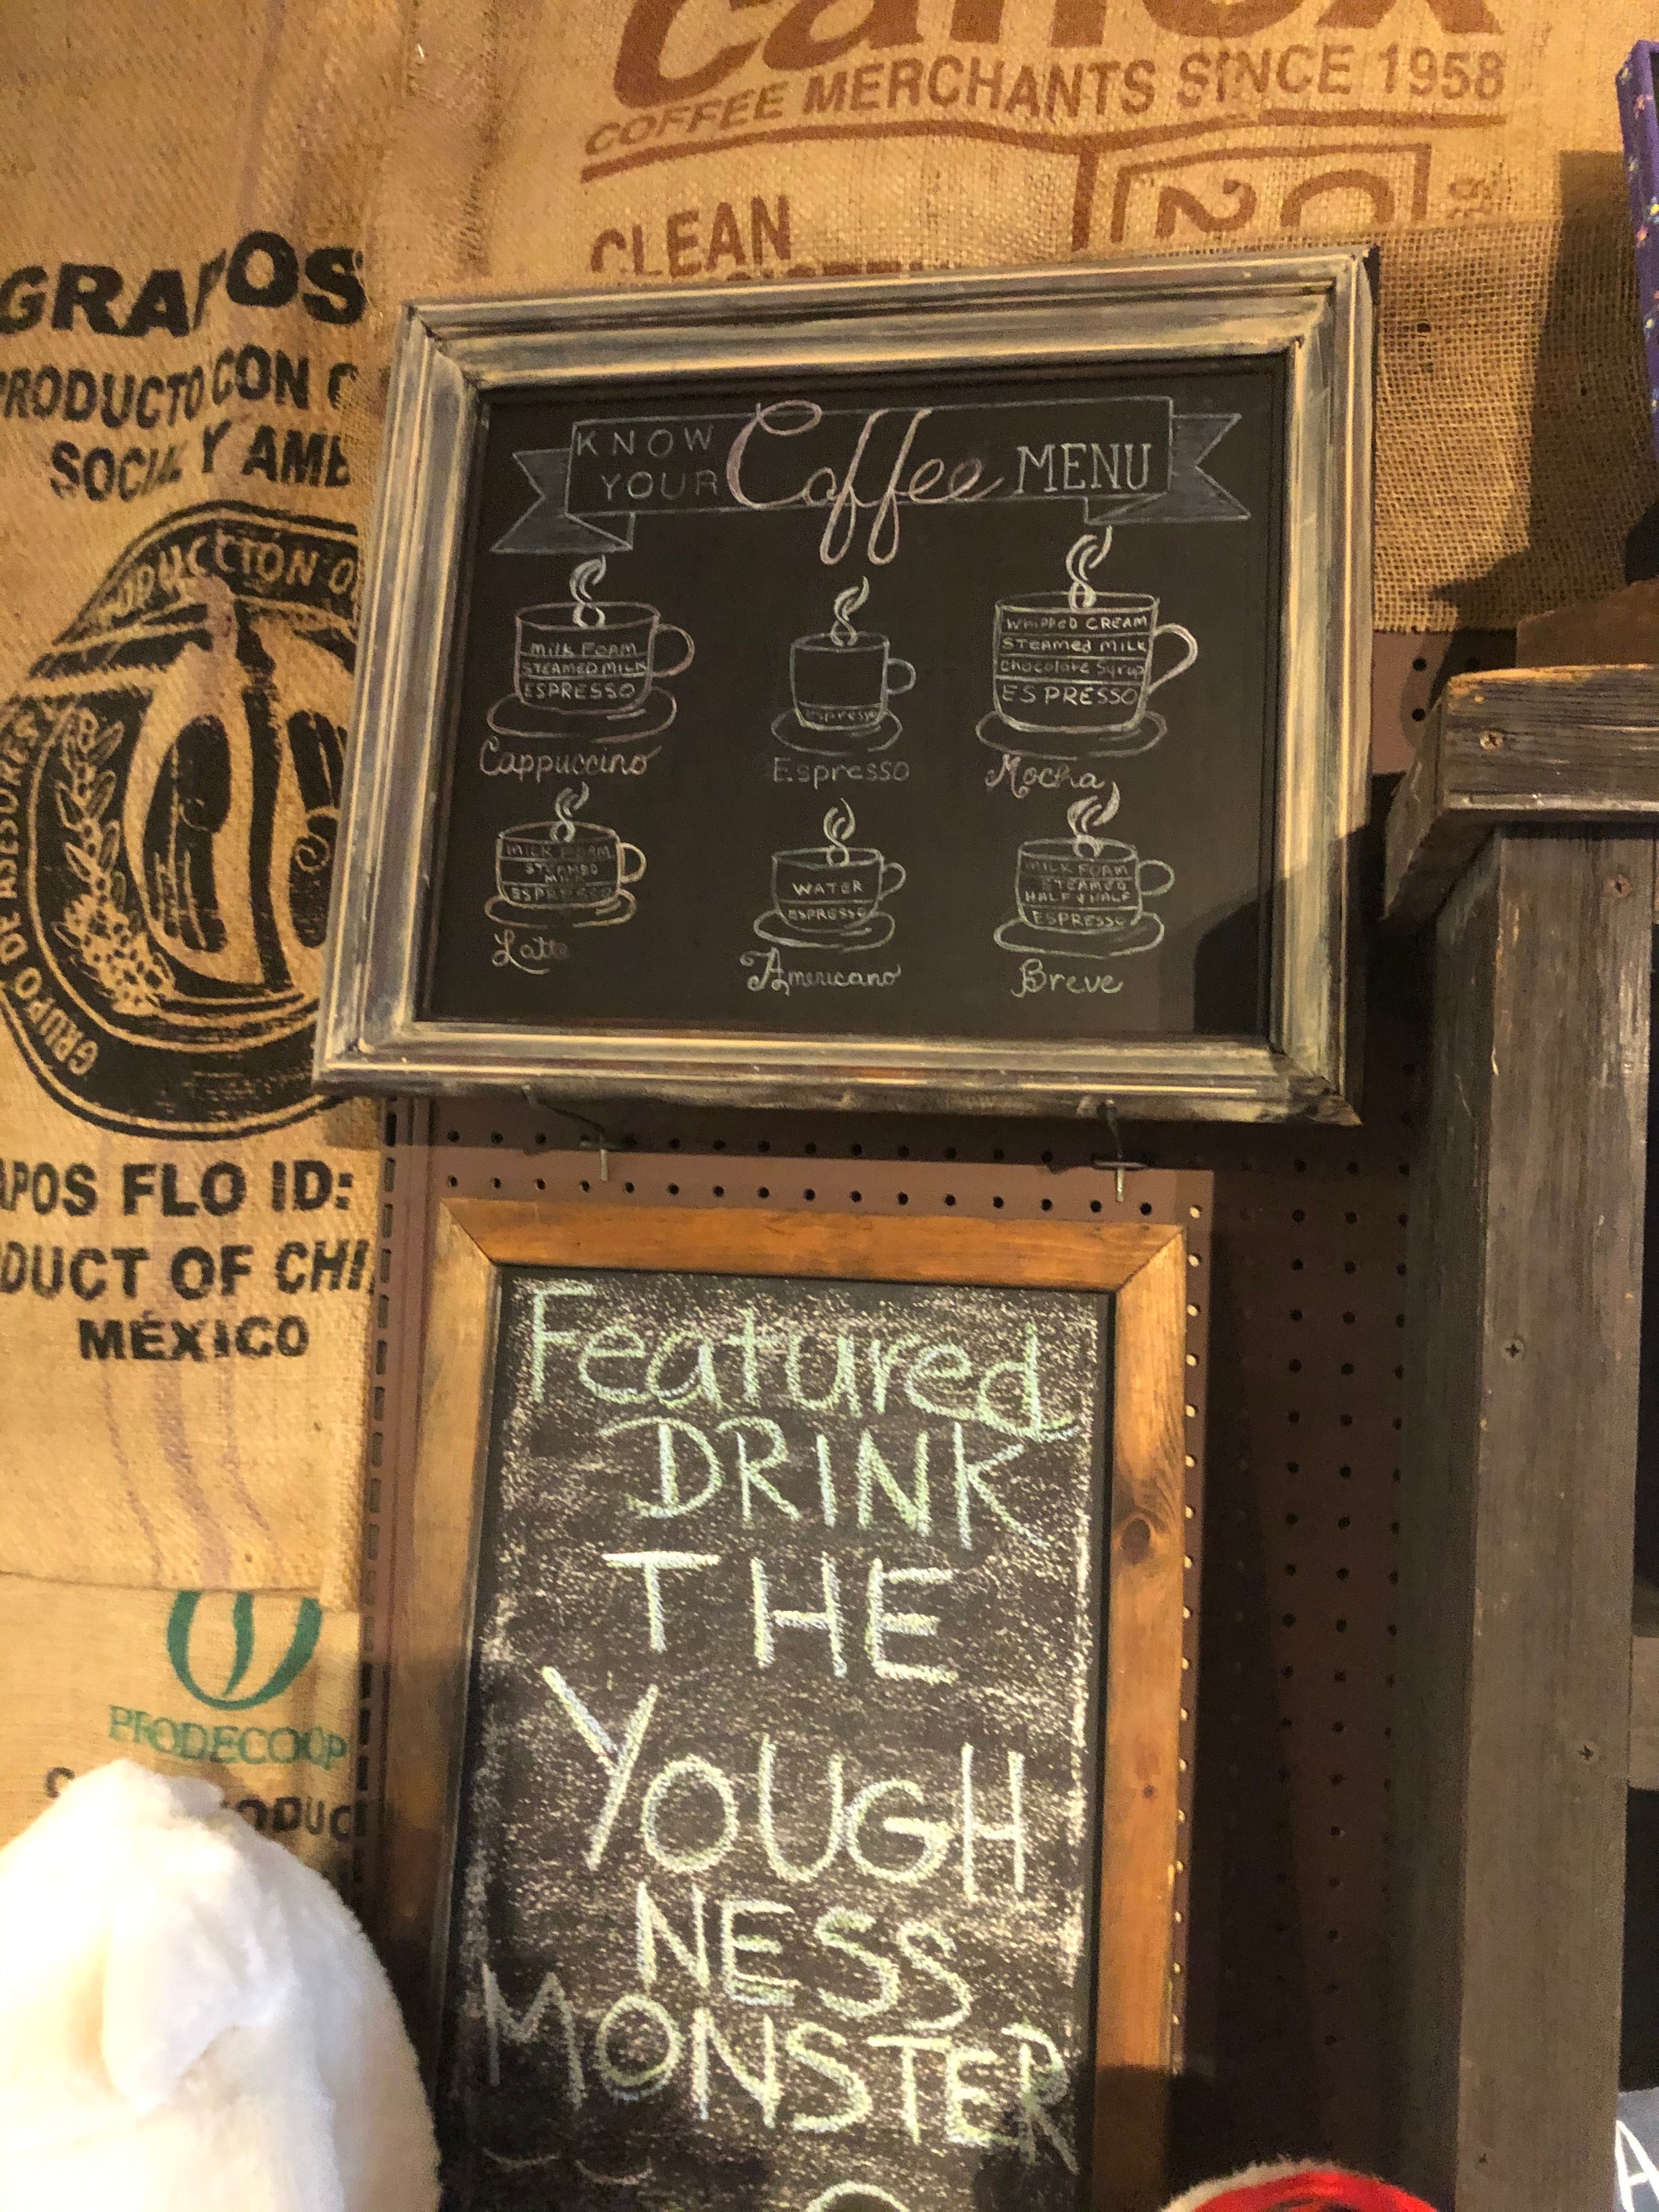 COFFEE MERCHANTS SINCE 1958
CLEAN
PRODUCTO CON
SOCIAL Y AMB
GRUPO DE ASESORES
APOS FLO ID:
DUCT OF CHI
MÉXICO
PRODECOOP
KNOW
YOUR
Coffee MENU
Milk FOAM
STEAMED MILK
ESPRESSO
Cappuccino
espresso
Espresso
WHIPPED CREAM
STEAMED MILK
Chocolate Syrup
ESPRESSO
Mocha
MILK FOAM
STEAMED
MILK
ESPRESSO
Latte
WATER
ESPRESSO
Americano
MILK FOAM
STEAMED
HALF & HALF
ESPRESSO
Breve
Featured
DRINK
THE
YOUGH
NESS
MONSTER